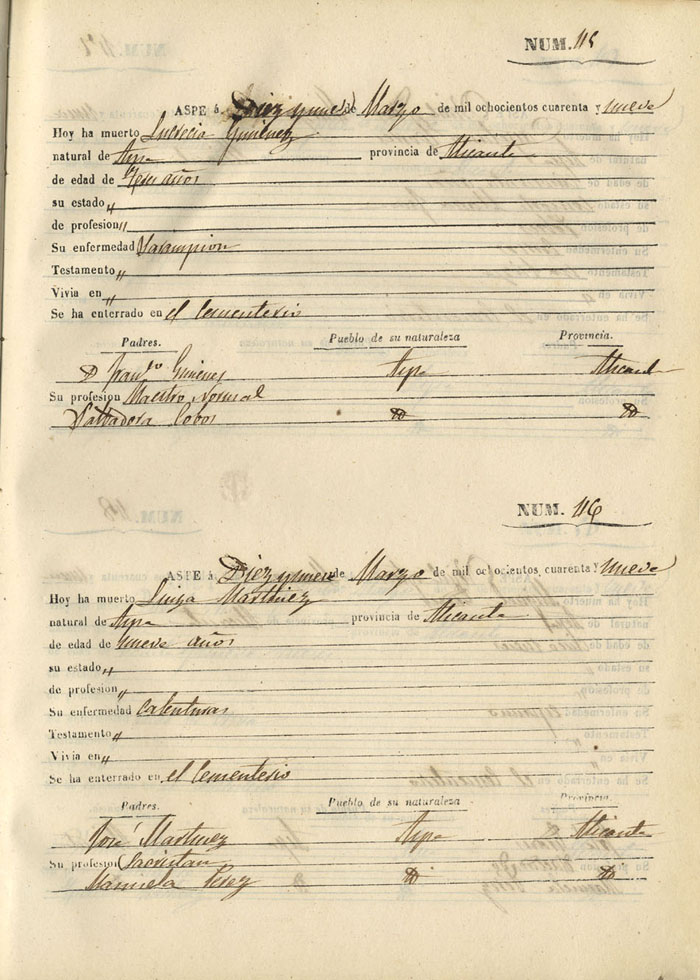 NUM. 115
ASPE á Diez y nueve de Marzo de mil ochocientos cuarenta y nueve
Hoy ha muerto Lucrecia Gimenez
natural de Aspe provincia de Alicante
de edad de Tres años
su estado "
de profesion "
Su enfermedad Sarampion
Testamento "
Vivia en "
Se ha enterrado en el Cementerio
Padres. Pueblo de su naturaleza Provincia.
D Fran.co Gimenez Aspe Alicante
Su profesion Maestro Normal
Salbadora Cobos D D
NUM. 116
ASPE á Diez y nueve de Marzo de mil ochocientos cuarenta y nueve
Hoy ha muerto Luiza Martinez
natural de Aspe provincia de Alicante
de edad de nueve años
su estado "
de profesion "
Su enfermedad Calenturas
Testamento "
Vivia en "
Se ha enterrado en el Cementerio
Padres. Pueblo de su naturaleza Provincia.
José Martinez Aspe Alicante
Su profesion Sacristan
Manuela Perez D D